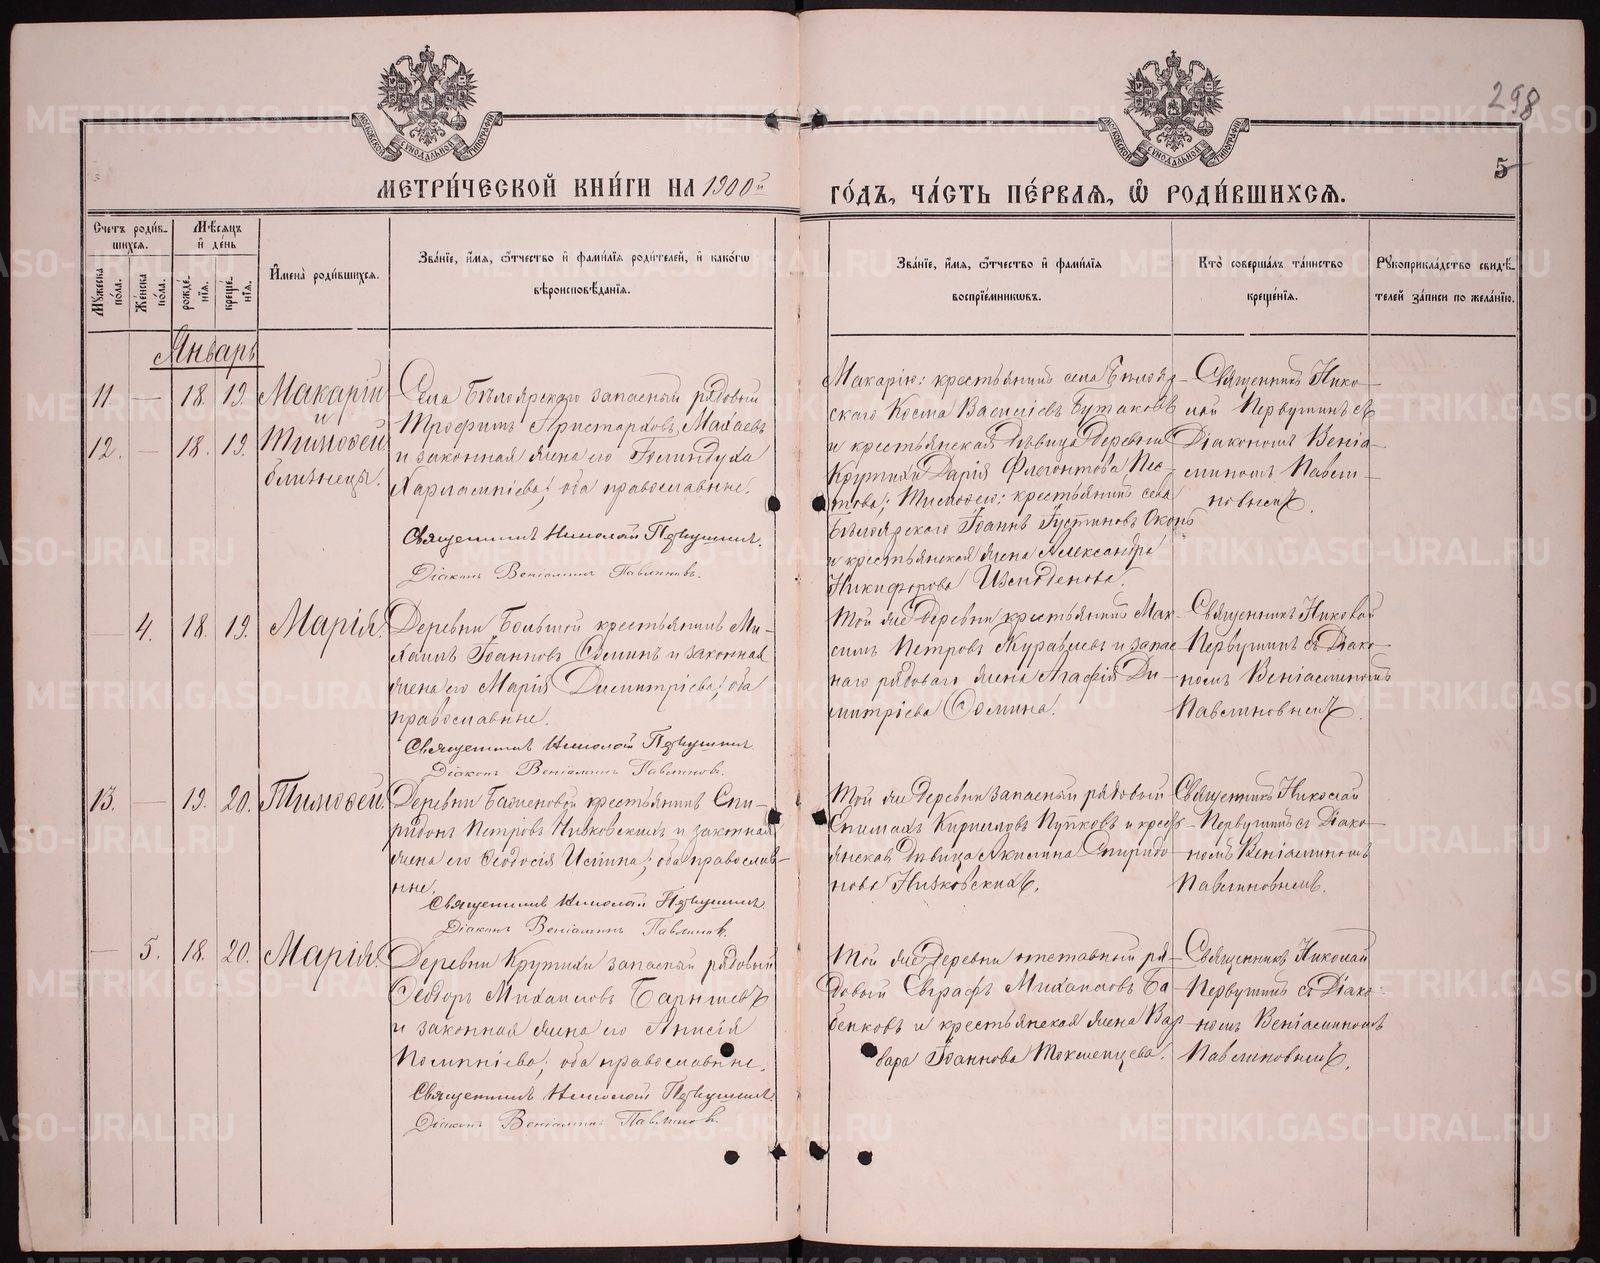 298
5
МОСКОВСКОЙ СѴНОДАЛЬНОЙ ТИПОГРАФІИ
МОСКОВСКОЙ СѴНОДАЛЬНОЙ ТИПОГРАФІИ
МЕТРИ́ЧЕСКОЙ КНИ́ГИ НА 1900й
ГО́ДЪ, ЧА́СТЬ ПЕ́РВАЯ, Ѽ РОДИ́ВШИХСЯ.
Счетъ роди́в-
шихся.
Мѣсяцъ
и де́нь
Мꙋжеска по́ла.
Же́нска по́ла.
рожде́-нія.
креще́-нія.
Имена̀ роди́вшихся.
Зва́ніе, и́мя, ѻ҆́тчество и҆ фами́лія роди́телей, и҆ како́гѡ
вѣроисповѣ́данія.
Зва́ніе, и́мя, ѻ҆́тчество и҆ фами́лія
воспріе́мникѡвъ.
Кто̀ соверша́лъ та́инство
креще́нія.
Рꙋкоприкла́дство свидѣ́-
телей за́писи по жела́нію.
Январь
11. — 18. 19. Макарій
и
12. — 18. 19. Тимоѳей
близнецы.
Села Бѣлоярскаго запасный рядовый
Трофимъ Аристарховъ Махаевъ
и законная жена его Голиндуха
Харлампіева; оба православные.
Священникъ Николай Первушинъ.
Діаконъ Веніаминъ Павлиновъ.
Макарію: крестьянинъ села Бѣлояр-
скаго Косма Василіевъ Бутаковъ
и крестьянская дѣвица деревни
Крутихи Дарія Флегонтова Пес-
това; Тимоѳею: крестьянинъ села
Бѣлоярскаго Іоаннъ Іустиновъ
и крестьянская жена Александра
Никифорова Измоденова.
Священникъ Нико-
лай Первушинъ съ
Діакономъ Веніа-
миномъ Павли-
новымъ.
— 4. 18. 19. Марія.
Деревни Большой крестьянинъ Ми-
хаилъ Іоанновъ Соминъ и законная
жена его Марія Димитріева; оба
православные.
Священникъ Николай Первушинъ
Діаконъ Веніаминъ Павлиновъ.
Той же деревни крестьянинъ Мак-
симъ Петровъ Журавлевъ и запас-
наго рядоваго жена Агафія Ди-
митріева Сомина.
Священникъ Николай
Первушинъ съ Діако-
номъ Веніаминомъ
Павлиновымъ.
13. — 19. 20. Тимоѳей.
Деревни Баженовой крестьянинъ Спи-
ридонъ Петровъ Низковскихъ и законная
жена его Ѳеодосія; оба православ-
ные.
Священникъ Николай Первушинъ
Діаконъ Веніаминъ Павлиновъ.
Той же деревни запасный рядовый
Кирилловъ Пупковъ и кресть-
янская дѣвица Акилина Спиридо-
нова Низковскихъ.
Священникъ Николай
Первушинъ съ Діако-
номъ Веніаминомъ
Павлиновымъ.
— 5. 18. 20. Марія.
Деревни Крутихи запасный рядовый
Ѳеодоръ Михаиловъ Барышевъ
и законная жена его Анисія
оба православные.
Священникъ Николай Первушинъ
Діаконъ Веніаминъ Павлиновъ.
Той же деревни отставной ря-
довый Евграфъ Михаиловъ Ба-
бенковъ и крестьянская жена Вар-
вара Іоаннова Токменцева.
Священникъ Николай
Первушинъ съ Діако-
номъ Веніаминомъ
Павлиновымъ.
METRIKI.GASO-URAL.RU